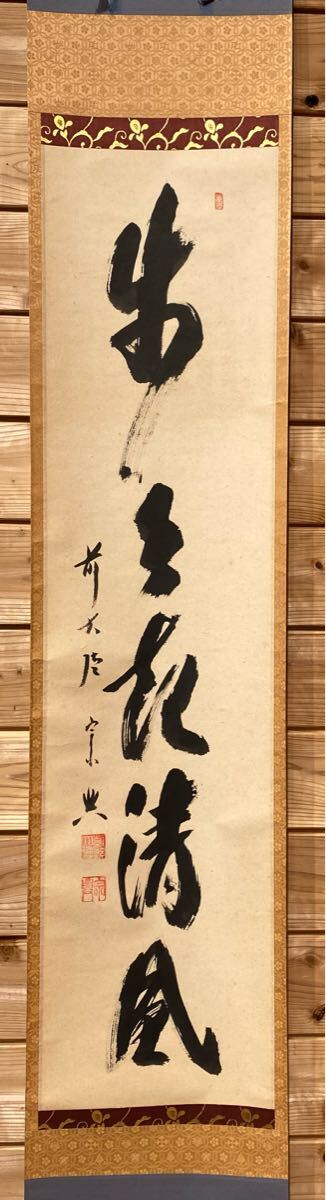 歩々起清風
前大徳 宗典